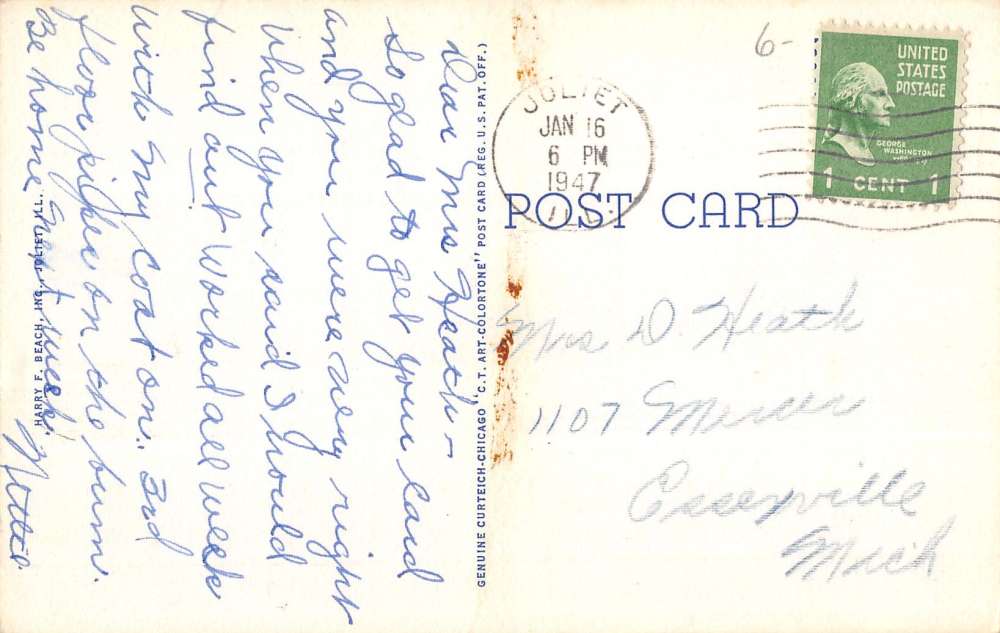 Dear Mrs Heath –
So glad to get your card
and you were very right
When you said I would
find out. Worked all week
with my coat on. 3rd
floor pipes on the bum.
Be home next week.
HARRY F. BEACH, INC., JOLIET, ILL.
GENUINE CURTEICH-CHICAGO "C.T. ART-COLORTONE" POST CARD (REG. U.S. PAT. OFF.)
6-
JOLIET
JAN 16
6 PM
1947
ILL.
UNITED
STATES
POSTAGE
GEORGE
WASHINGTON
1 CENT 1
POST CARD
Mrs D. Heath
1107 Mercer
Essexville
Mich